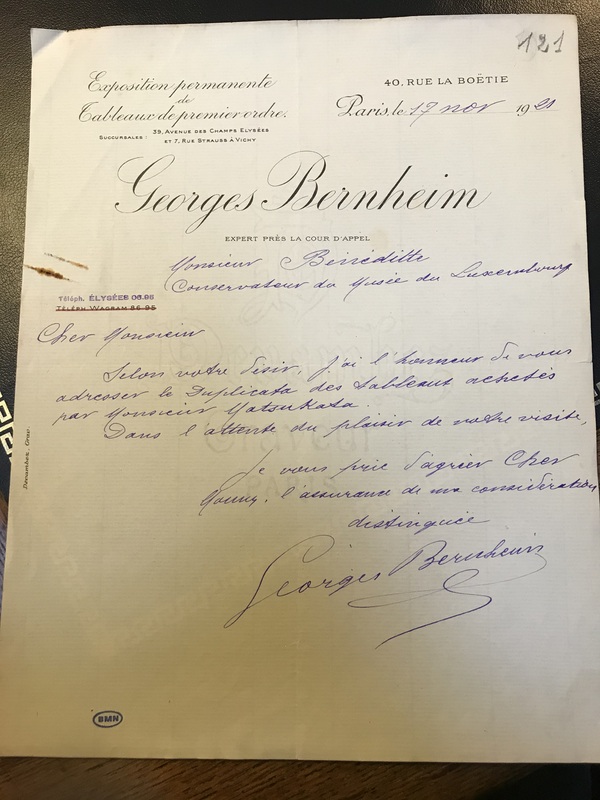 121
Exposition permanente
de
Tableaux de premier ordre.
SUCCURSALES : 39, AVENUE DES CHAMPS ELYSÉES
ET 7, RUE STRAUSS À VICHY
40, RUE LA BOËTIE
Paris, le 17 nov 1921
Georges Bernheim
EXPERT PRÈS LA COUR D'APPEL
Monsieur Bénéditte
Conservateur du Musée du Luxembourg
Téléph. ÉLYSÉES 06.06
TÉLÉPH WAGRAM 86-95
Cher Monsieur
Selon votre désir, j'ai l'honneur de vous
adresser le Duplicata des tableaux achetés
par Monsieur Matsukata.
Dans l'attente du plaisir de votre visite,
Je vous prie d'agréer Cher
l'assurance de ma considération
distinguée
Georges Bernheim
BMN